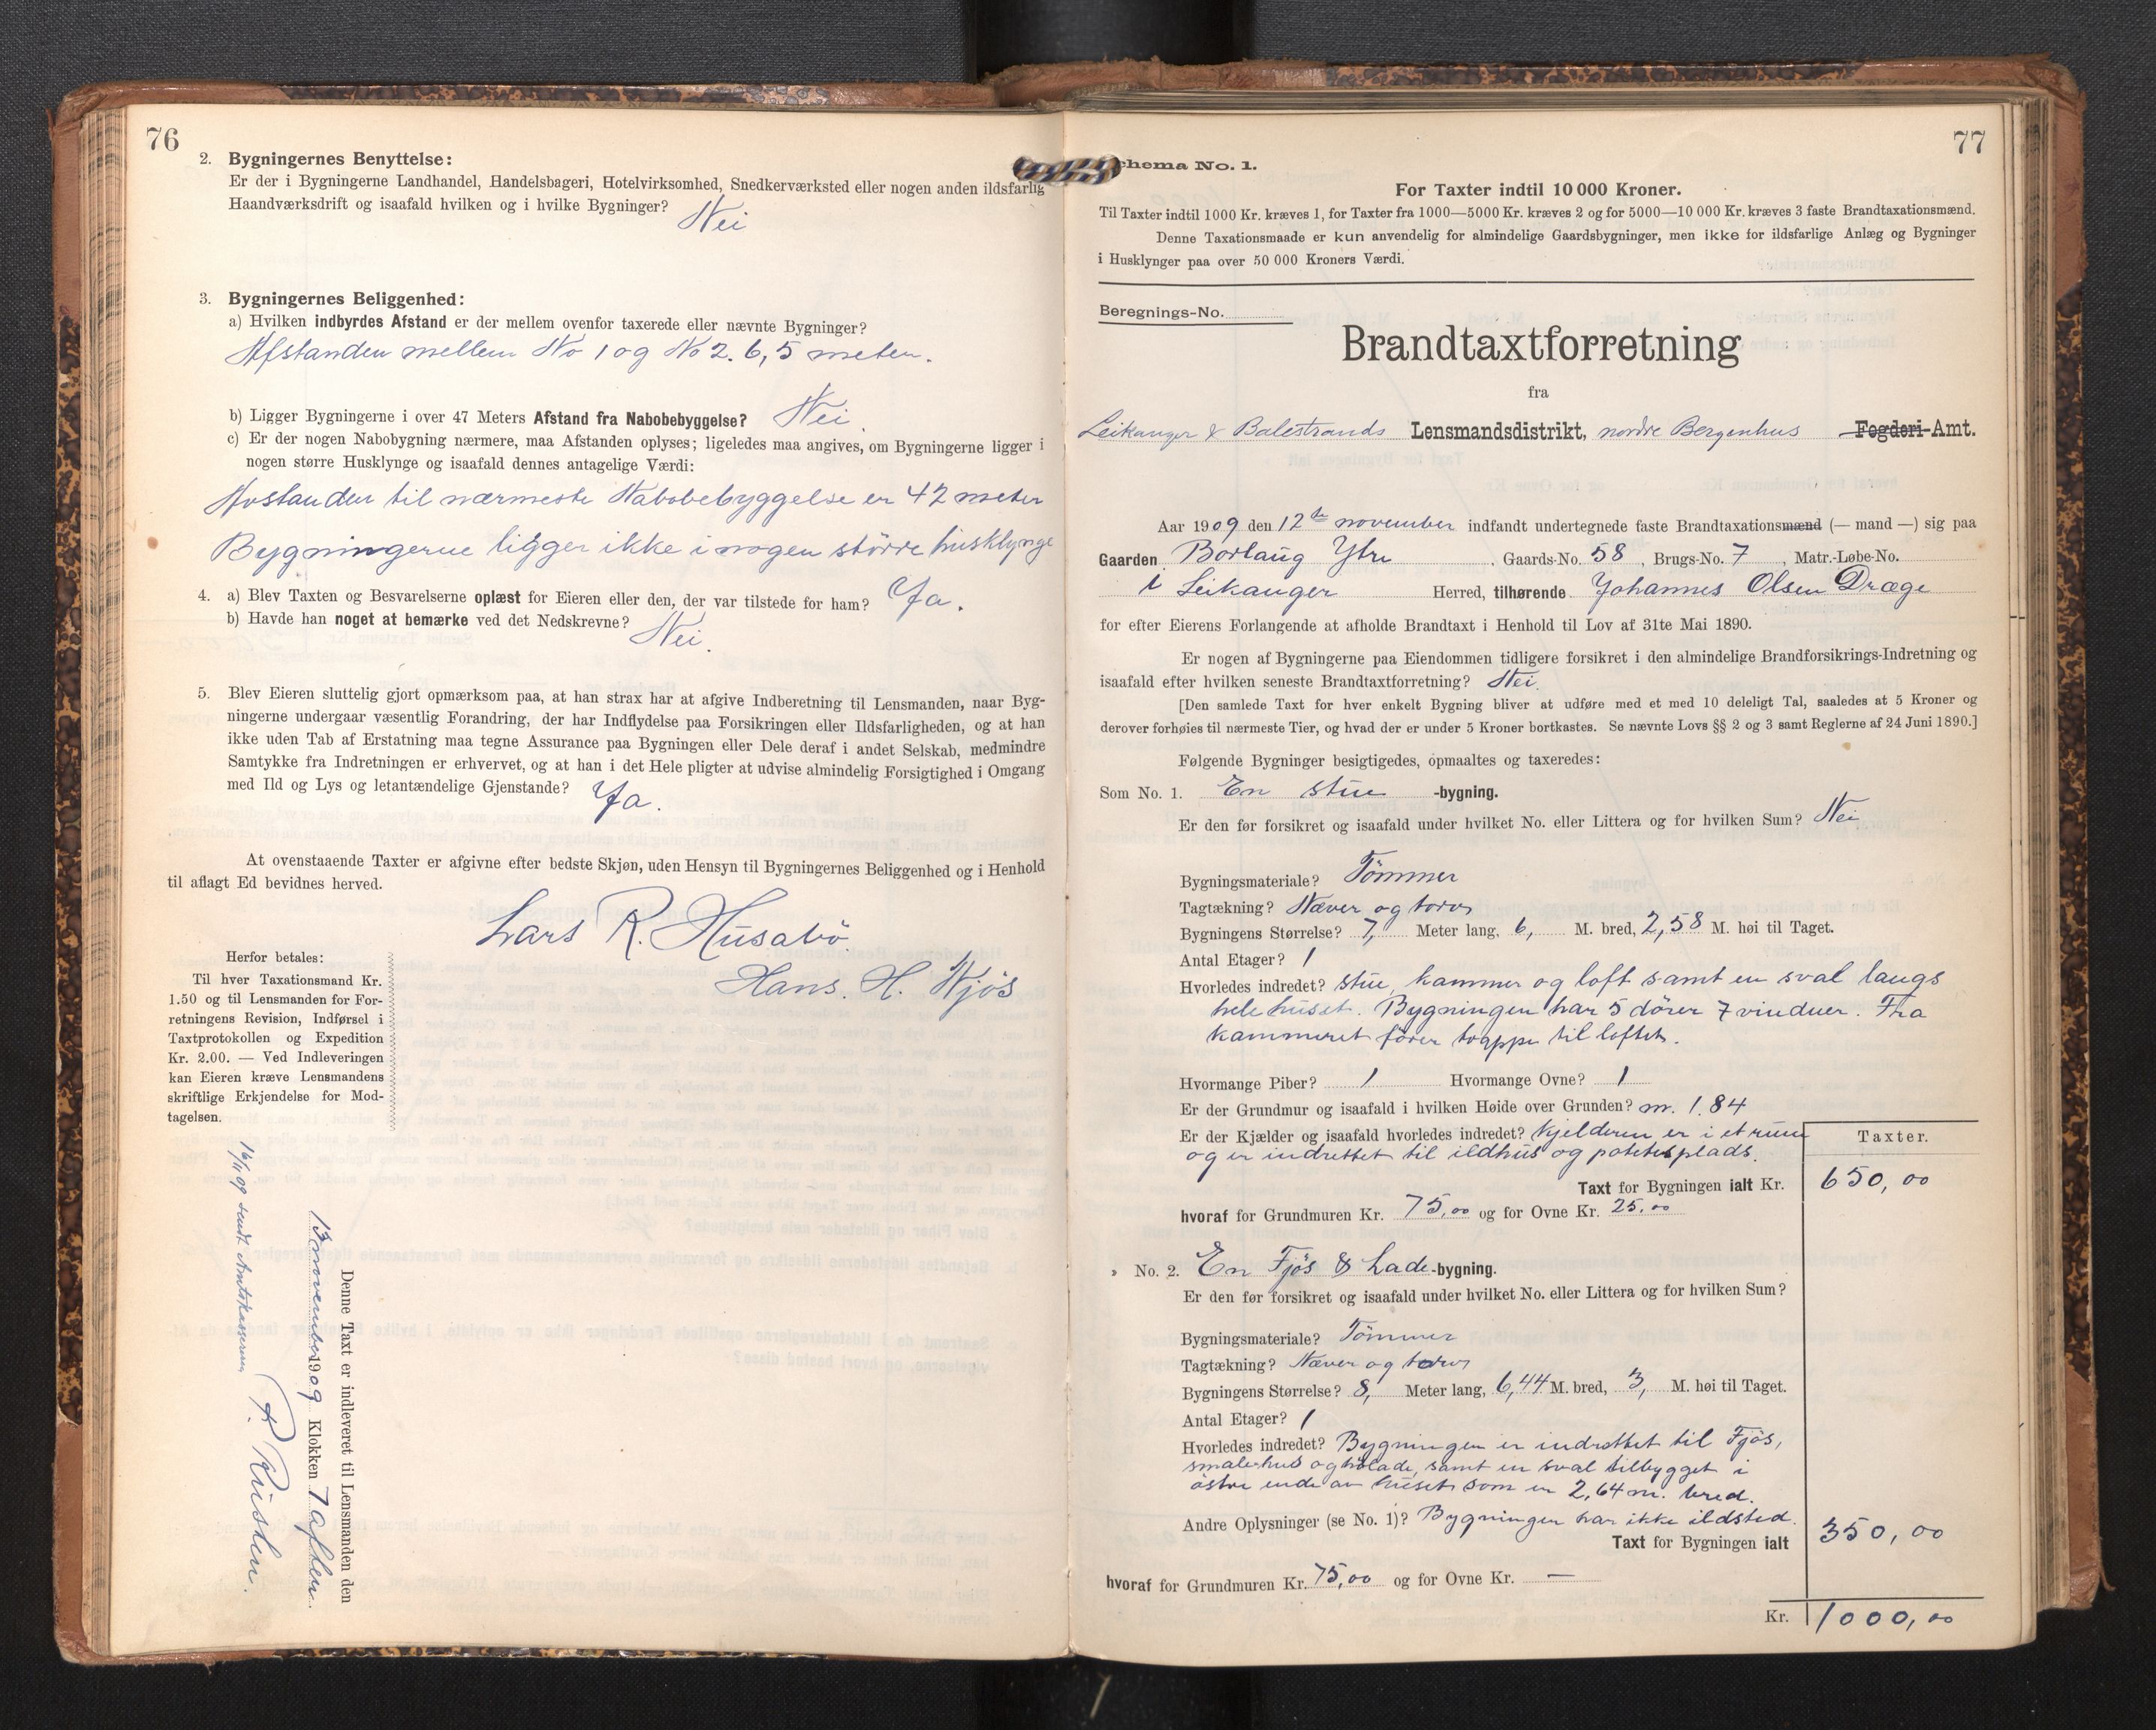 76
2. Bygningernes Benyttelse:
Er der i Bygningerne Landhandel, Handelsbageri, Hotelvirksomhed, Snedkerværksted eller nogen anden ildsfarlig
Haandværksdrift og isaafald hvilken og i hvilke Bygninger?
Nei
3. Bygningernes Beliggenhed:
a) Hvilken indbyrdes Afstand er der mellem ovenfor taxerede eller nævnte Bygninger?
Afstanden mellem No 1 og No 2. 6,5 meter.
b) Ligger Bygningerne i over 47 Meters Afstand fra Nabobebyggelse? Nei.
c) Er der nogen Nabobygning nærmere, maa Afstanden oplyses; ligeledes maa angives, om Bygningerne ligger i
nogen større Husklynge og isaafald dennes antagelige Værdi:
Avstanden til nærmeste Nabobebyggelse er 42 meter
Bygningerne ligger ikke i nogen större husklynge
4. a) Blev Taxten og Besvarelserne oplæst for Eieren eller den, der var tilstede for ham? Ja.
b) Havde han noget at bemærke ved det Nedskrevne? Nei.
5. Blev Eieren sluttelig gjort opmærksom paa, at han strax har at afgive Indberetning til Lensmanden, naar Byg-
ningerne undergaar væsentlig Forandring, der har Indflydelse paa Forsikringen eller Ildsfarligheden, og at han
ikke uden Tab af Erstatning maa tegne Assurance paa Bygningen eller Dele deraf i andet Selskab, medmindre
Samtykke fra Indretningen er erhvervet, og at han i det Hele pligter at udvise almindelig Forsigtighed i Omgang
med Ild og Lys og letantændelige Gjenstande? Ja.
At ovenstaaende Taxter er afgivne efter bedste Skjøn, uden Hensyn til Bygningernes Beliggenhed og i Henhold
til aflagt Ed bevidnes herved.
Lars R. Husabö.
Hans. H. Njös
Herfor betales:
Til hver Taxationsmand Kr.
1.50 og til Lensmanden for For-
retningens Revision, Indførsel i
Taxtprotokollen og Expedition
Kr. 2.00. — Ved Indleveringen
kan Eieren kræve Lensmandens
skriftlige Erkjendelse for Mod-
tagelsen.
Denne Taxt er indleveret til Lensmanden den
13 november 1909 Klokken 7 aften.
16/11 09 sendt Amtskassereren
77
chema No. 1.
For Taxter indtil 10 000 Kroner.
Til Taxter indtil 1000 Kr. kræves 1, for Taxter fra 1000—5000 Kr. kræves 2 og for 5000—10 000 Kr. kræves 3 faste Brandtaxationsmænd.
Denne Taxationsmaade er kun anvendelig for almindelige Gaardsbygninger, men ikke for ildsfarlige Anlæg og Bygninger
i Husklynger paa over 50 000 Kroners Værdi.
Beregnings-No.
Brandtaxtforretning
fra
Leikanger & Balestrands Lensmandsdistrikt, nordre Bergenhus Fogderi-Amt.
Aar 1909 den 12te november indfandt undertegnede faste Brandtaxationsmænd (— mand —) sig paa
Gaarden Borlaug Ytre, Gaards-No. 58, Brugs-No. 7, Matr.-Løbe-No.
i Leikanger Herred, tilhørende Johannes Olsen Dræge
for efter Eierens Forlangende at afholde Brandtaxt i Henhold til Lov af 31te Mai 1890.
Er nogen af Bygningerne paa Eiendommen tidligere forsikret i den almindelige Brandforsikrings-Indretning og
isaafald efter hvilken seneste Brandtaxtforretning? Nei.
[Den samlede Taxt for hver enkelt Bygning bliver at udføre med et med 10 deleligt Tal, saaledes at 5 Kroner og
derover forhøies til nærmeste Tier, og hvad der er under 5 Kroner bortkastes. Se nævnte Lovs §§ 2 og 3 samt Reglerne af 24 Juni 1890.]
Følgende Bygninger besigtigedes, opmaaltes og taxeredes:
Som No. 1. En stue -bygning.
Er den før forsikret og isaafald under hvilket No. eller Littera og for hvilken Sum? Nei
Bygningsmateriale? Tömmer
Tagtækning? Næver og torv
Bygningens Størrelse? 7, Meter lang, 6, M. bred, 2,58 M. høi til Taget.
Antal Etager? 1
Hvorledes indredet? stue, kammer og loft samt en sval langs
hele huset. Bygningen har 5 dörer 7 vinduer. Fra
kammeret förer trappe til loftet.
Hvormange Piber? 1 Hvormange Ovne? 1
Er der Grundmur og isaafald i hvilken Høide over Grunden? m. 1.84
Er der Kjælder og isaafald hvorledes indredet? Kjelderen er i et rum
og er indrettet til ildhus og potetesplads.
Taxter.
Taxt for Bygningen ialt Kr. 650,00
hvoraf for Grundmuren Kr. 75,00 og for Ovne Kr. 25,00
" No. 2. En Fjös & Lade-bygning.
Er den før forsikret og isaafald under hvilket No. eller Littera og for hvilken Sum?
Bygningsmateriale? Tömmer
Tagtækning? Næver og torv
Bygningens Størrelse? 8, Meter lang, 6,44 M. bred, 3, M. høi til Taget.
Antal Etager? 1
Hvorledes indredet? Bygningen er indrettet til Fjös,
smalehus og hölade, samt en sval tilbygget i
östre ende av huset som er 2,64 m. bred.
Andre Oplysninger (se No. 1)? Bygningen har ikke ildsted.
Taxt for Bygningen ialt 350,00
hvoraf for Grundmuren Kr. 75,00 og for Ovne Kr. —
Kr. 1000,00